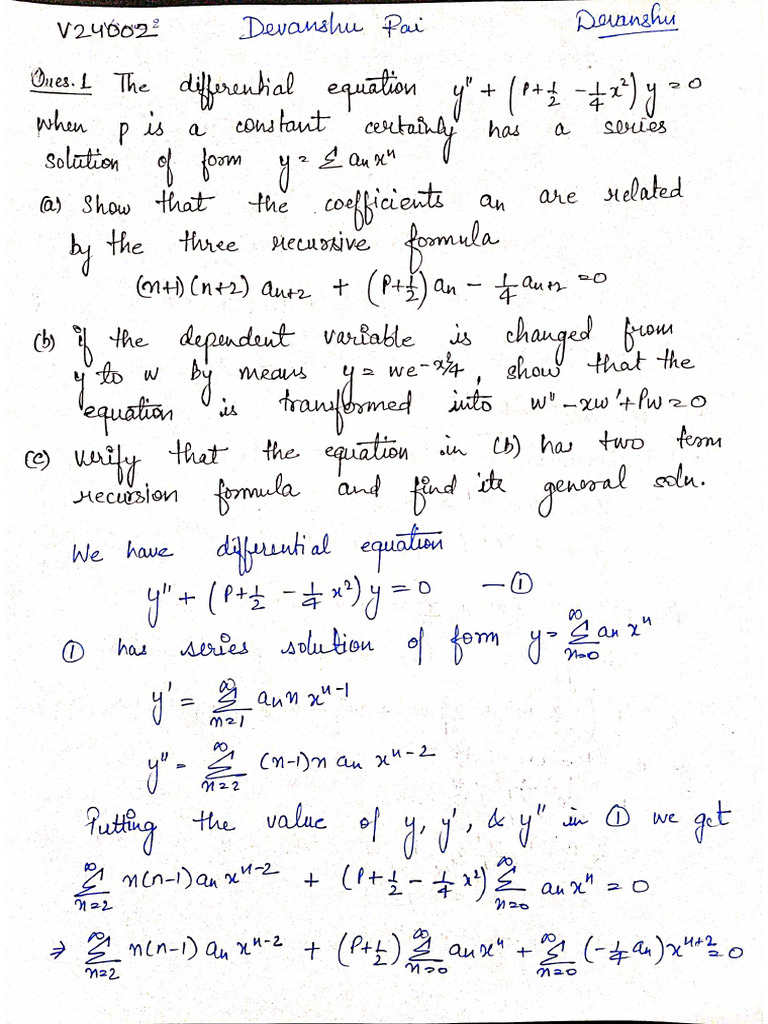 V24002² Devanshu Pai Devanshu
Ques.1 The differential equation y'' + (P+1/2 - 1/4 x²) y = 0
when p is a constant certainly has a series
solution of form y = Σ anxⁿ
(a) Show that the coefficients an are related
by the three recursive formula
(n+1)(n+2) an+2 + (P+1/2) an - 1/4 an+2 = 0
(b) if the dependent variable is changed from
y to w by means y = we^-x²/4, show that the
equation is transformed into w'' - xw' + Pw = 0
(c) verify that the equation in (b) has two term
recursion formula and find its general soln.
We have differential equation
y'' + (P+1/2 - 1/4 x²) y = 0 — ①
① has series solution of form y = Σ_{n=0}^{∞} an xⁿ
y' = Σ_{n=1}^{∞} an n xⁿ⁻¹
y'' = Σ_{n=2}^{∞} (n-1)n an xⁿ⁻²
Putting the value of y, y', & y'' in ① we get
Σ_{n=2}^{∞} n(n-1) an xⁿ⁻² + (P+1/2 - 1/4 x²) Σ_{n=0}^{∞} an xⁿ = 0
⇒ Σ_{n=2}^{∞} n(n-1) an xⁿ⁻² + (P+1/2) Σ_{n=0}^{∞} an xⁿ + Σ_{n=0}^{∞} (-1/4 an) xⁿ⁺² = 0